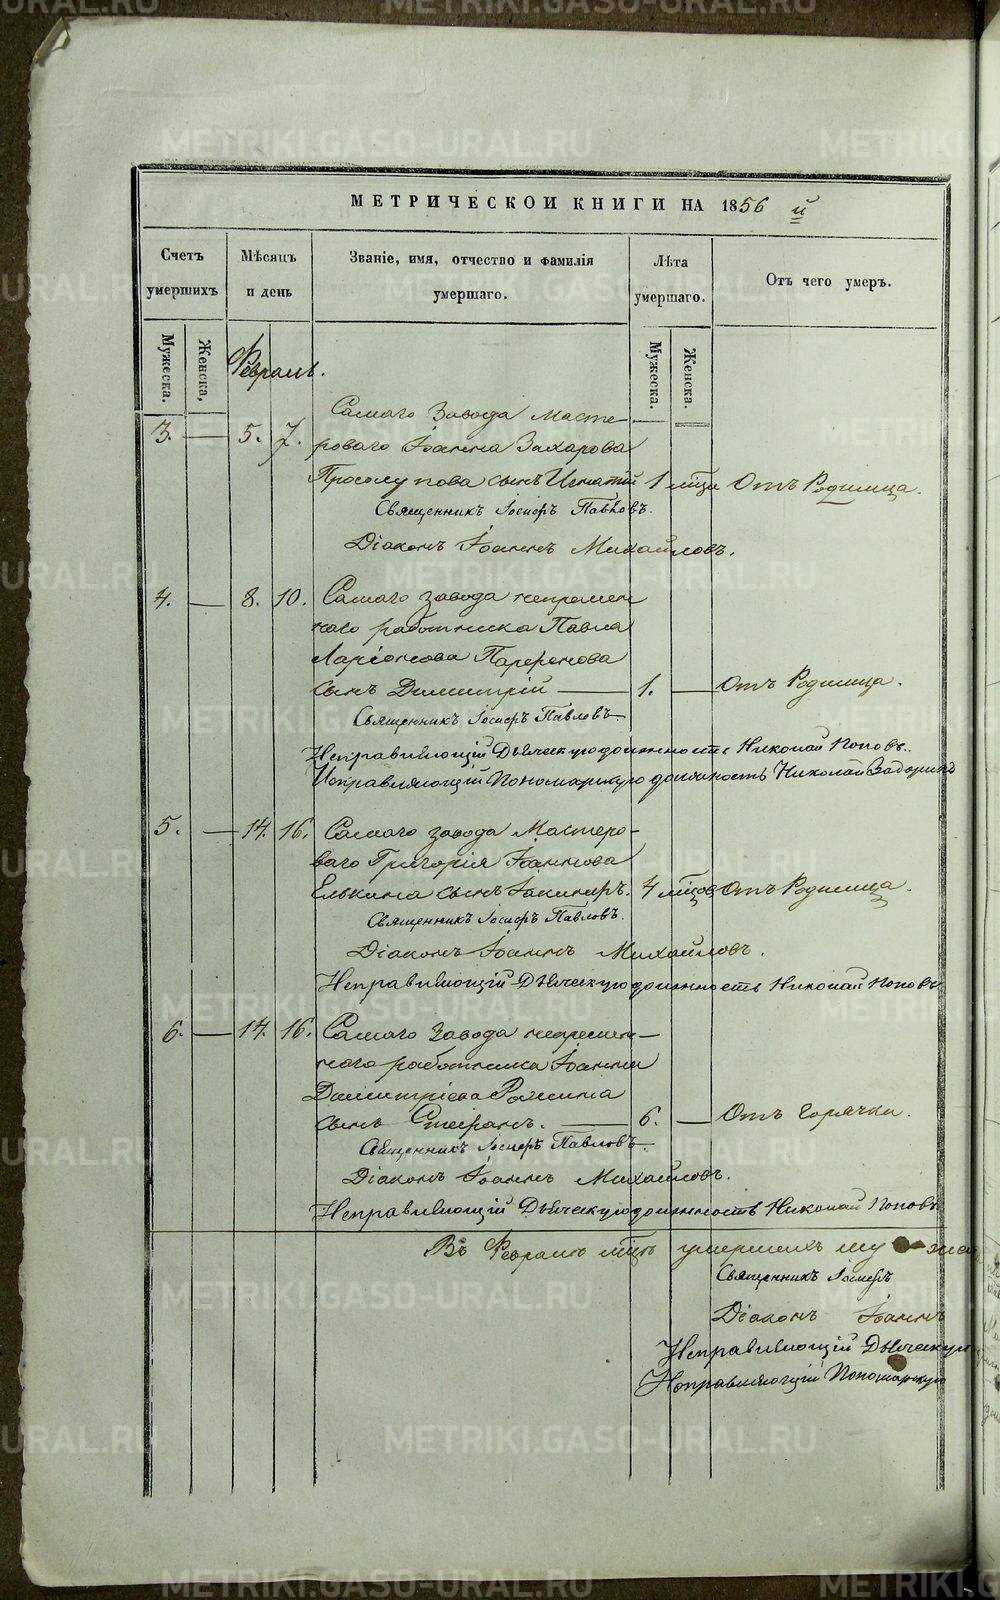 МЕТРИЧЕСКОЙ КНИГИ НА 1856 й
Счетъ умершихъ
Мѣсяцъ и день
Званіе, имя, отчество и фамилія умершаго.
Лѣта умершаго.
Отъ чего умеръ.
Мужеска.
Женска,
Мужеска.
Женска.
Февраль.
Самаго Завода Масте-
3. — 5. 7. роваго Іоанна Захарова
сынъ Игнатій 1 мца Отъ Родимца.
Священникъ Іосифъ Павловъ.
Діаконъ Іоаннъ Михайловъ.
4. — 8. 10. Самаго завода непремен
наго работника Павла
Ларіонова Парфенова
сынъ Димитрій — 1. — Отъ Родимца.
Священникъ Іосифъ Павловъ
Исправляющій Дьяческую должность Николай Поповъ.
Исправляющій Пономарскую должность Николай
5. — 14. 16. Самаго завода Мастеро-
ваго Григорія Іоаннова
Елькина сынъ 4 мцов Отъ Родимца.
Священникъ Іосифъ Павловъ.
Діаконъ Іоаннъ Михайловъ.
Исправляющій Дьяческую должность Николай Поповъ
6. — 14. 16. Самаго Завода непремен-
наго работника Іоанна
Димитріева
сынъ Стефанъ. — 6. — Отъ Горячки.
Священникъ Іосифъ Павловъ
Діаконъ Іоаннъ Михайловъ.
Исправляющій Дьяческую должность Николай Поповъ
Въ Февралѣ мцѣ умершихъ
Священникъ Іосифъ
Діаконъ Іоаннъ
Исправляющій Дьяческую
Исправляющій Пономарскую
METRIKI.GASO-URAL.RU